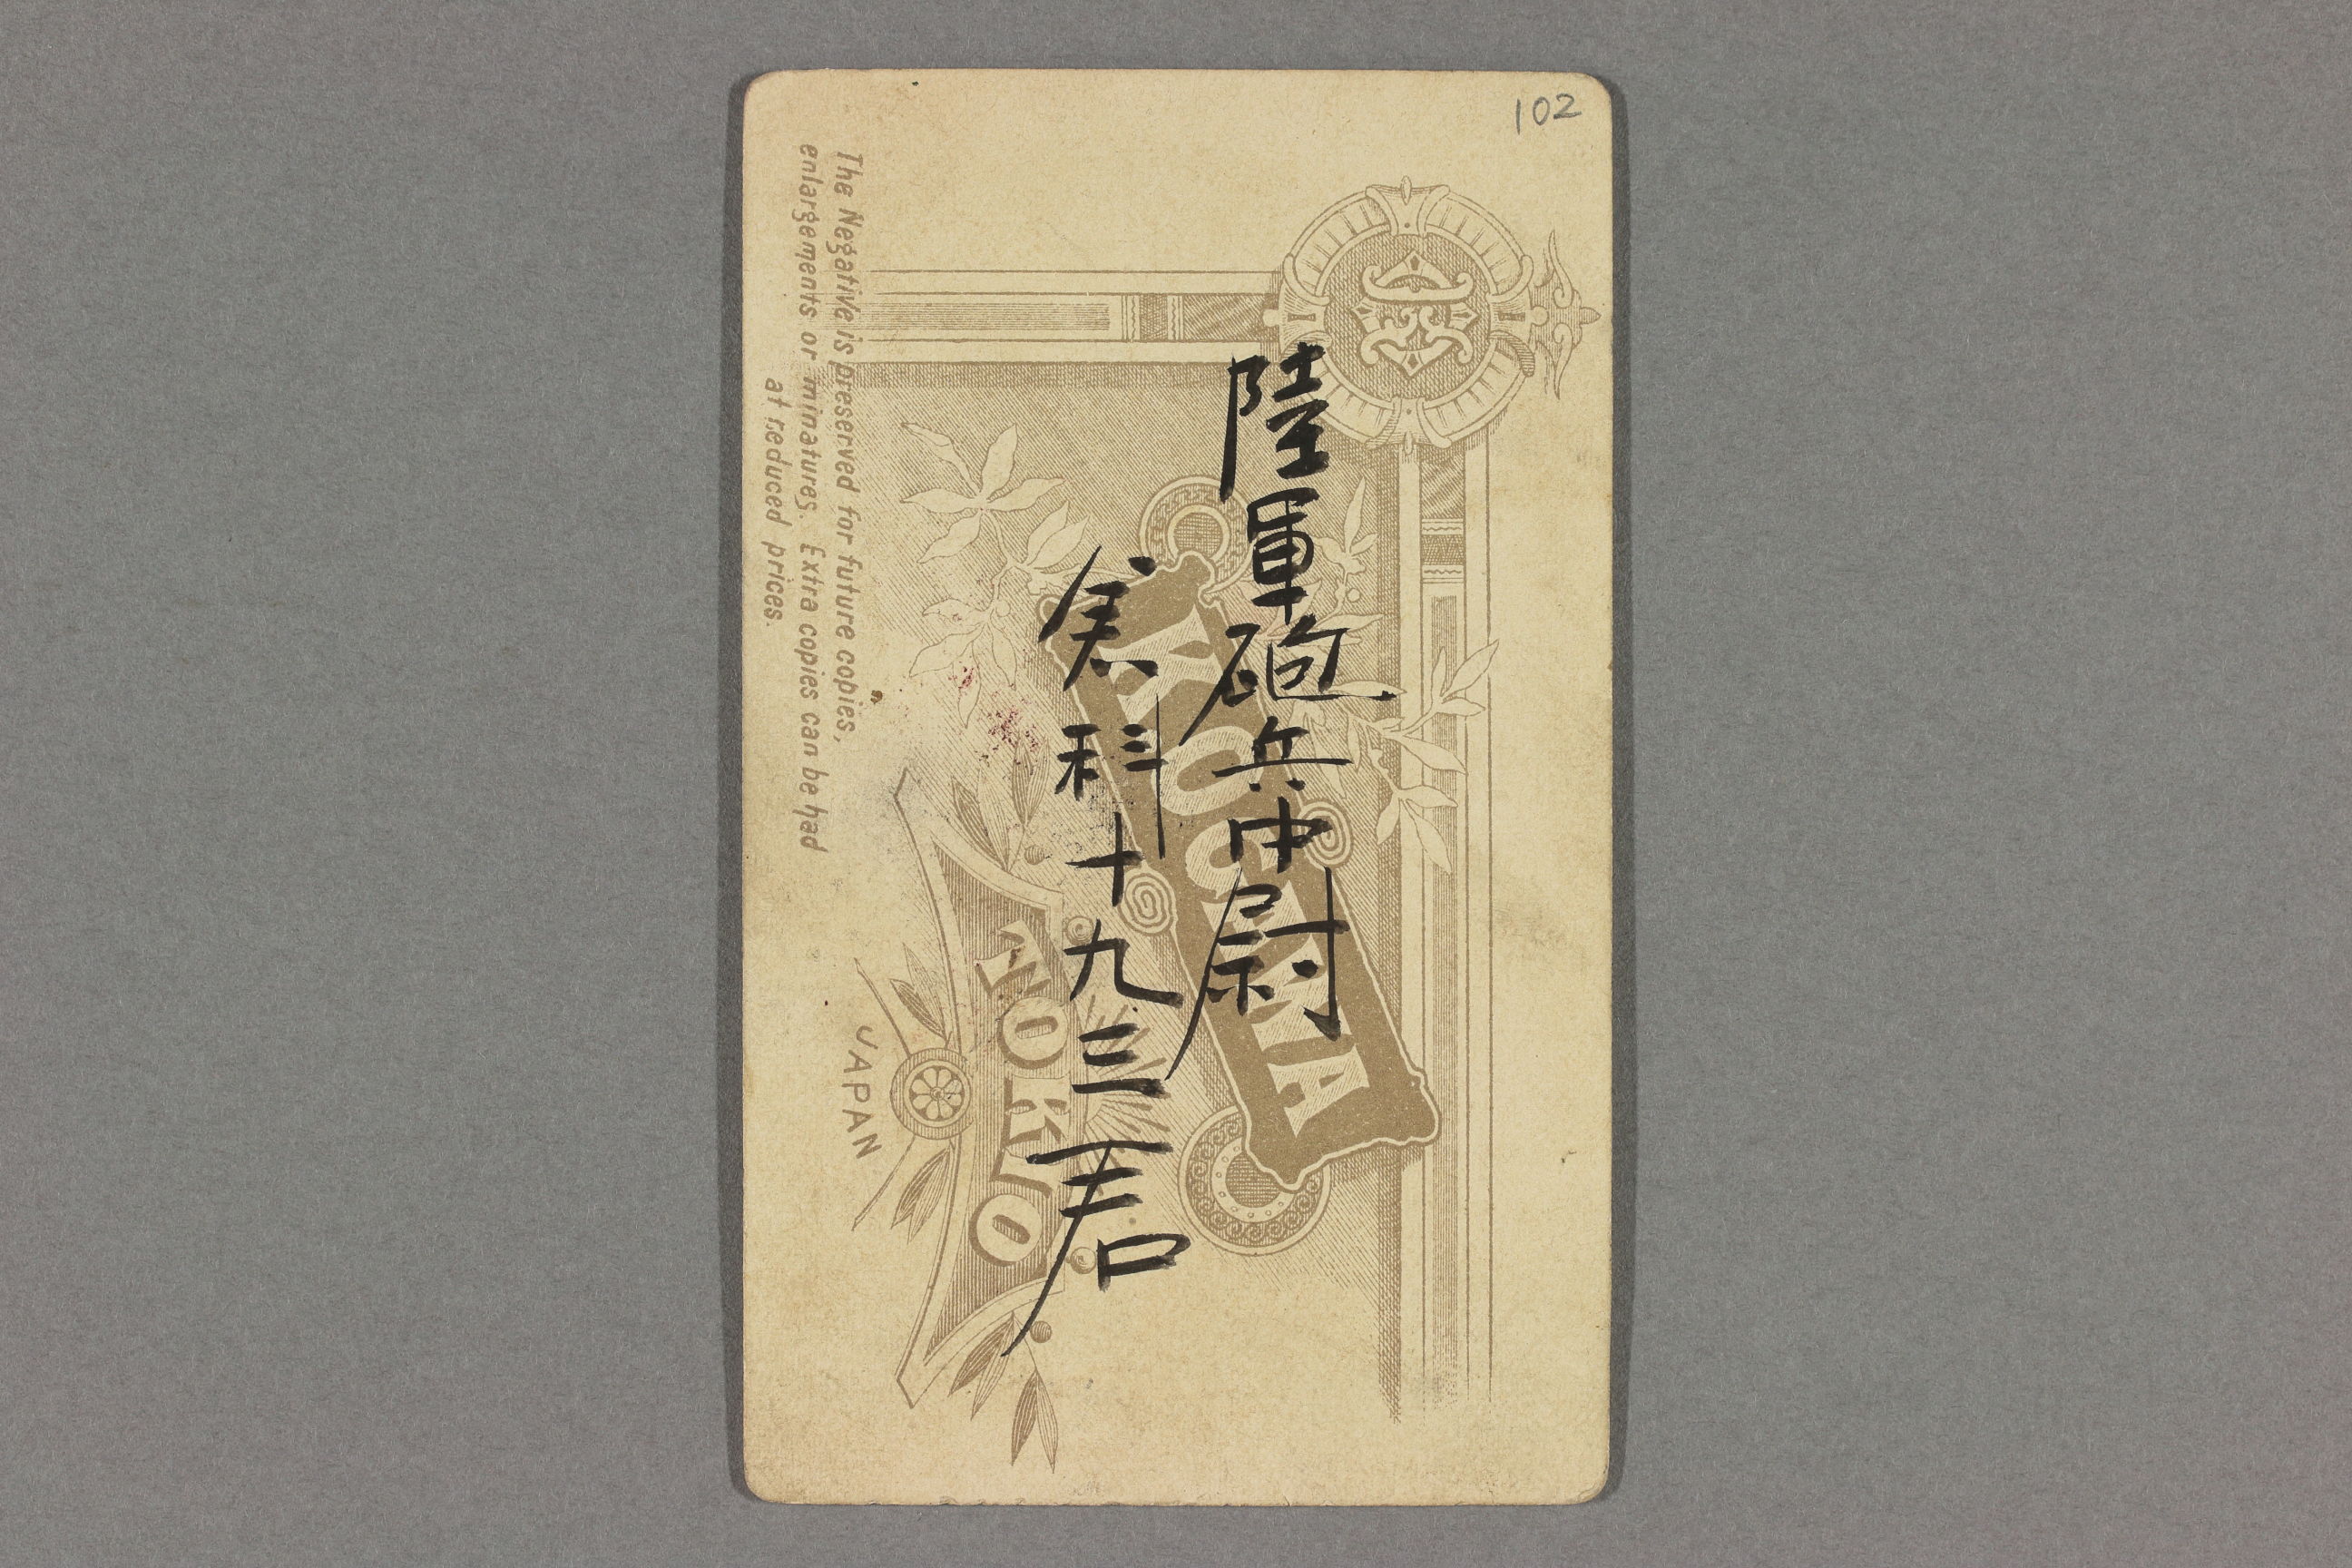 102
陸軍砲兵中尉
倉科十九三君
TOKIO
JAPAN
The Negative is preserved for future copies,
enlargements or minatures. Extra copies can be had
at reduced prices.